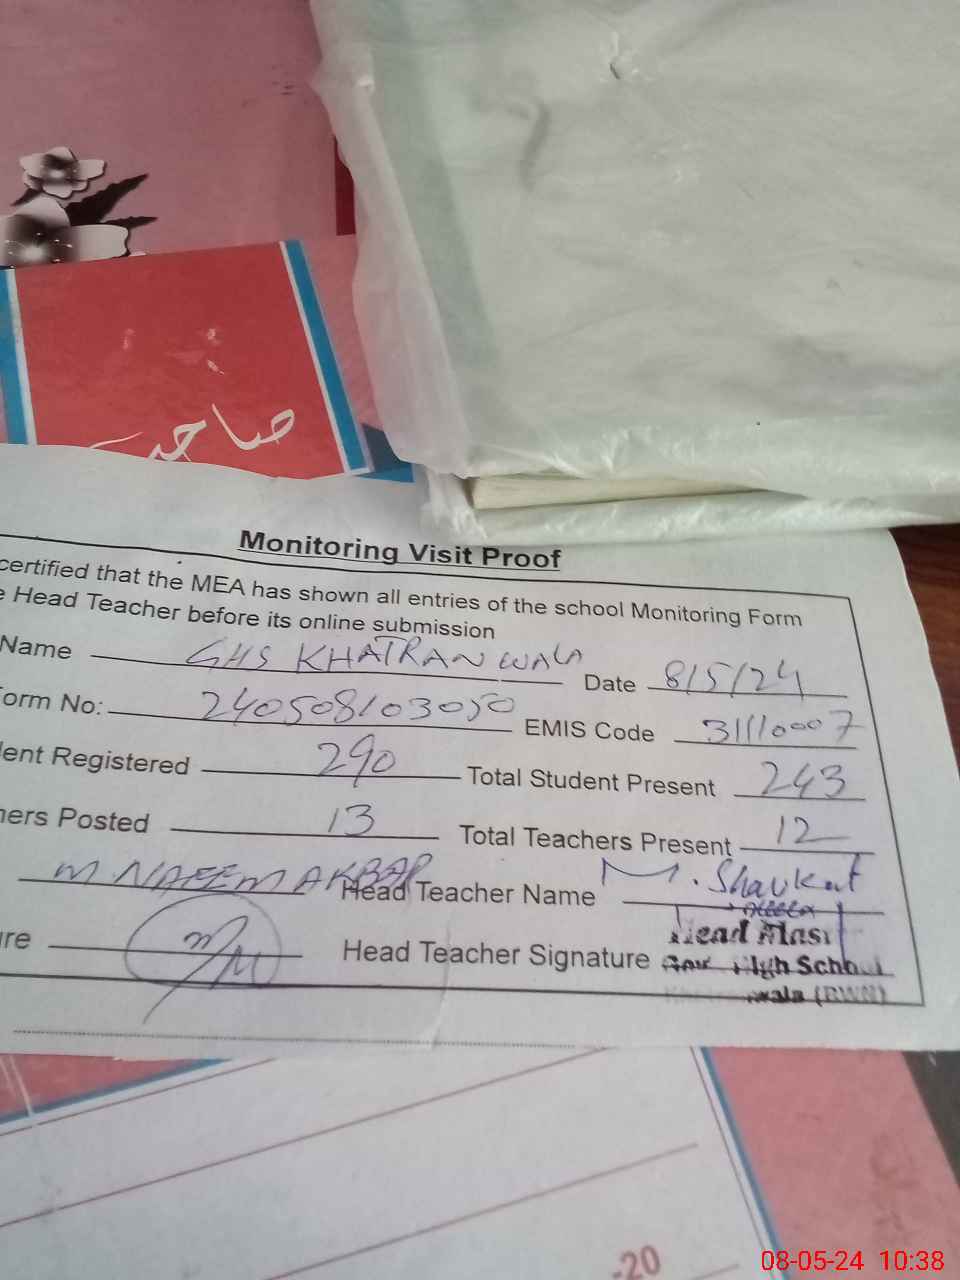 صاحب
Monitoring Visit Proof
certified that the MEA has shown all entries of the school Monitoring Form
e Head Teacher before its online submission
Name GHS KHATRAN WALA Date 8/5/24
orm No: 240508103050 EMIS Code 31110007
ent Registered 290 Total Student Present 243
ners Posted 13 Total Teachers Present 12
M. NAEEM AKBAR Head Teacher Name M. Shaukat
re Head Teacher Signature
Head Mast
Gov High School
wala (BWN)
-20
08-05-24 10:38